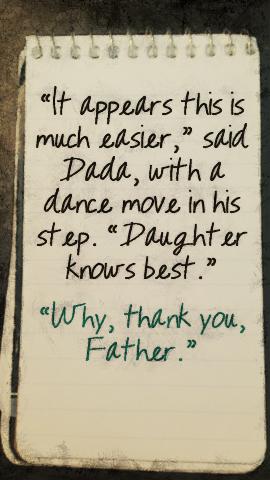 “It appears this is
much easier,” said
Dada, with a
dance move in his
step. “Daughter
knows best.”
“Why, thank you,
Father.”